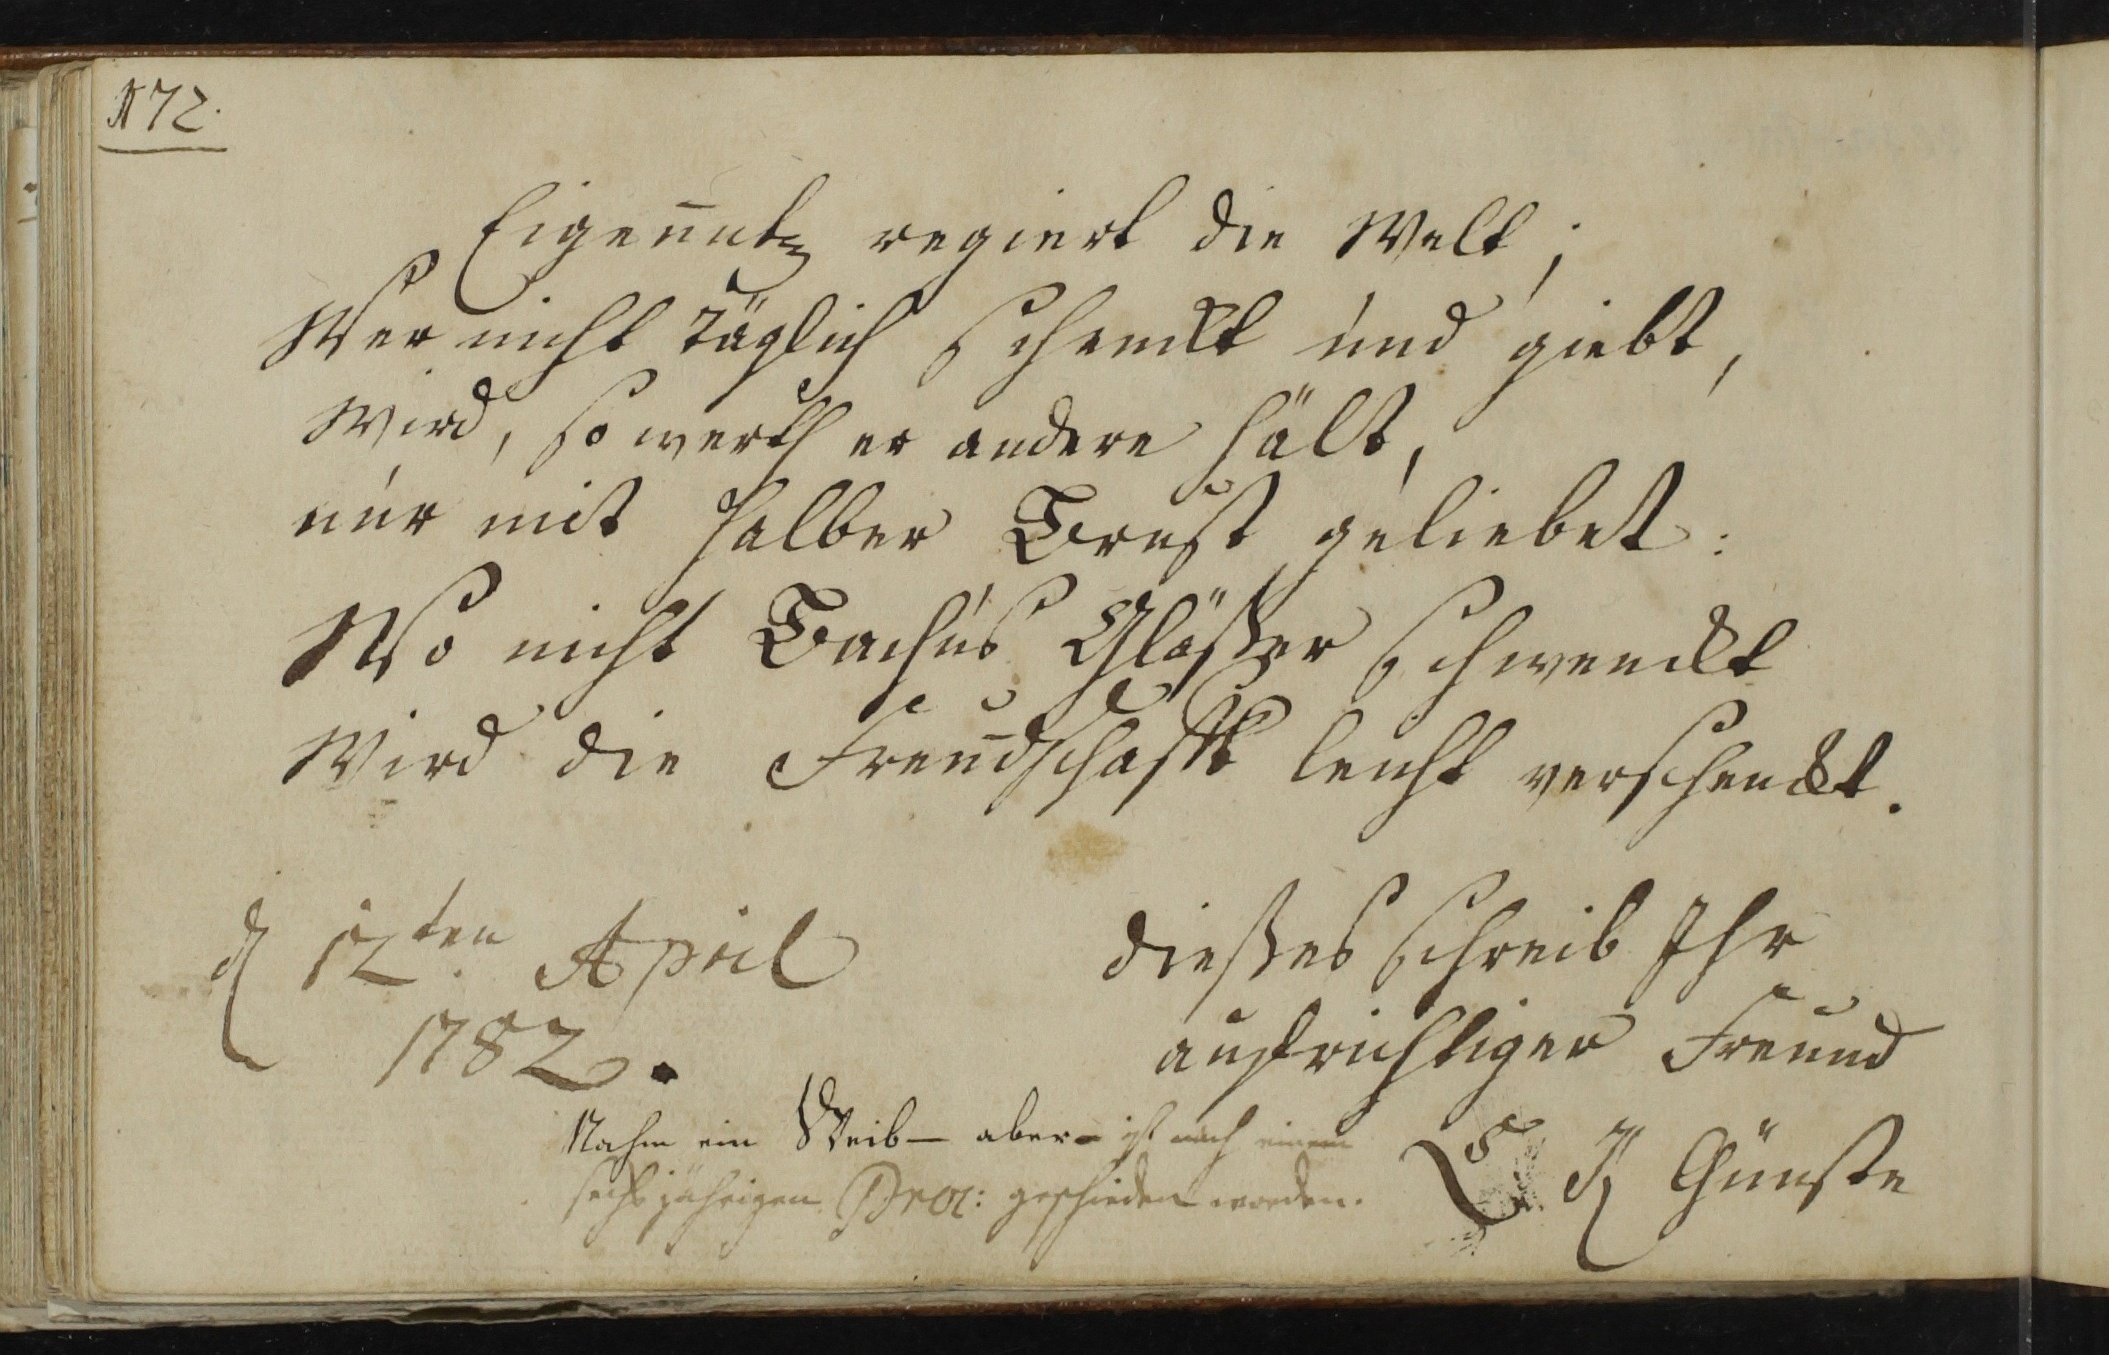 172.
Eigen̅utz regiert die Welt;
Wer nicht täglich schenckt und giebt,
Wird, so werth er andere hält,
nur mit halber Brust geliebet:
Wo nicht Bachus Gläßer schwenckt
Wird die Freu̅dschafft leicht verschenckt.
d 12ten April
1782.
dießes schreib Ihr
aufrichtiger Freund
J Günste
Nahm ein Weib – aber – ist nach einem
sechsjährigen Proc: geschieden worden.